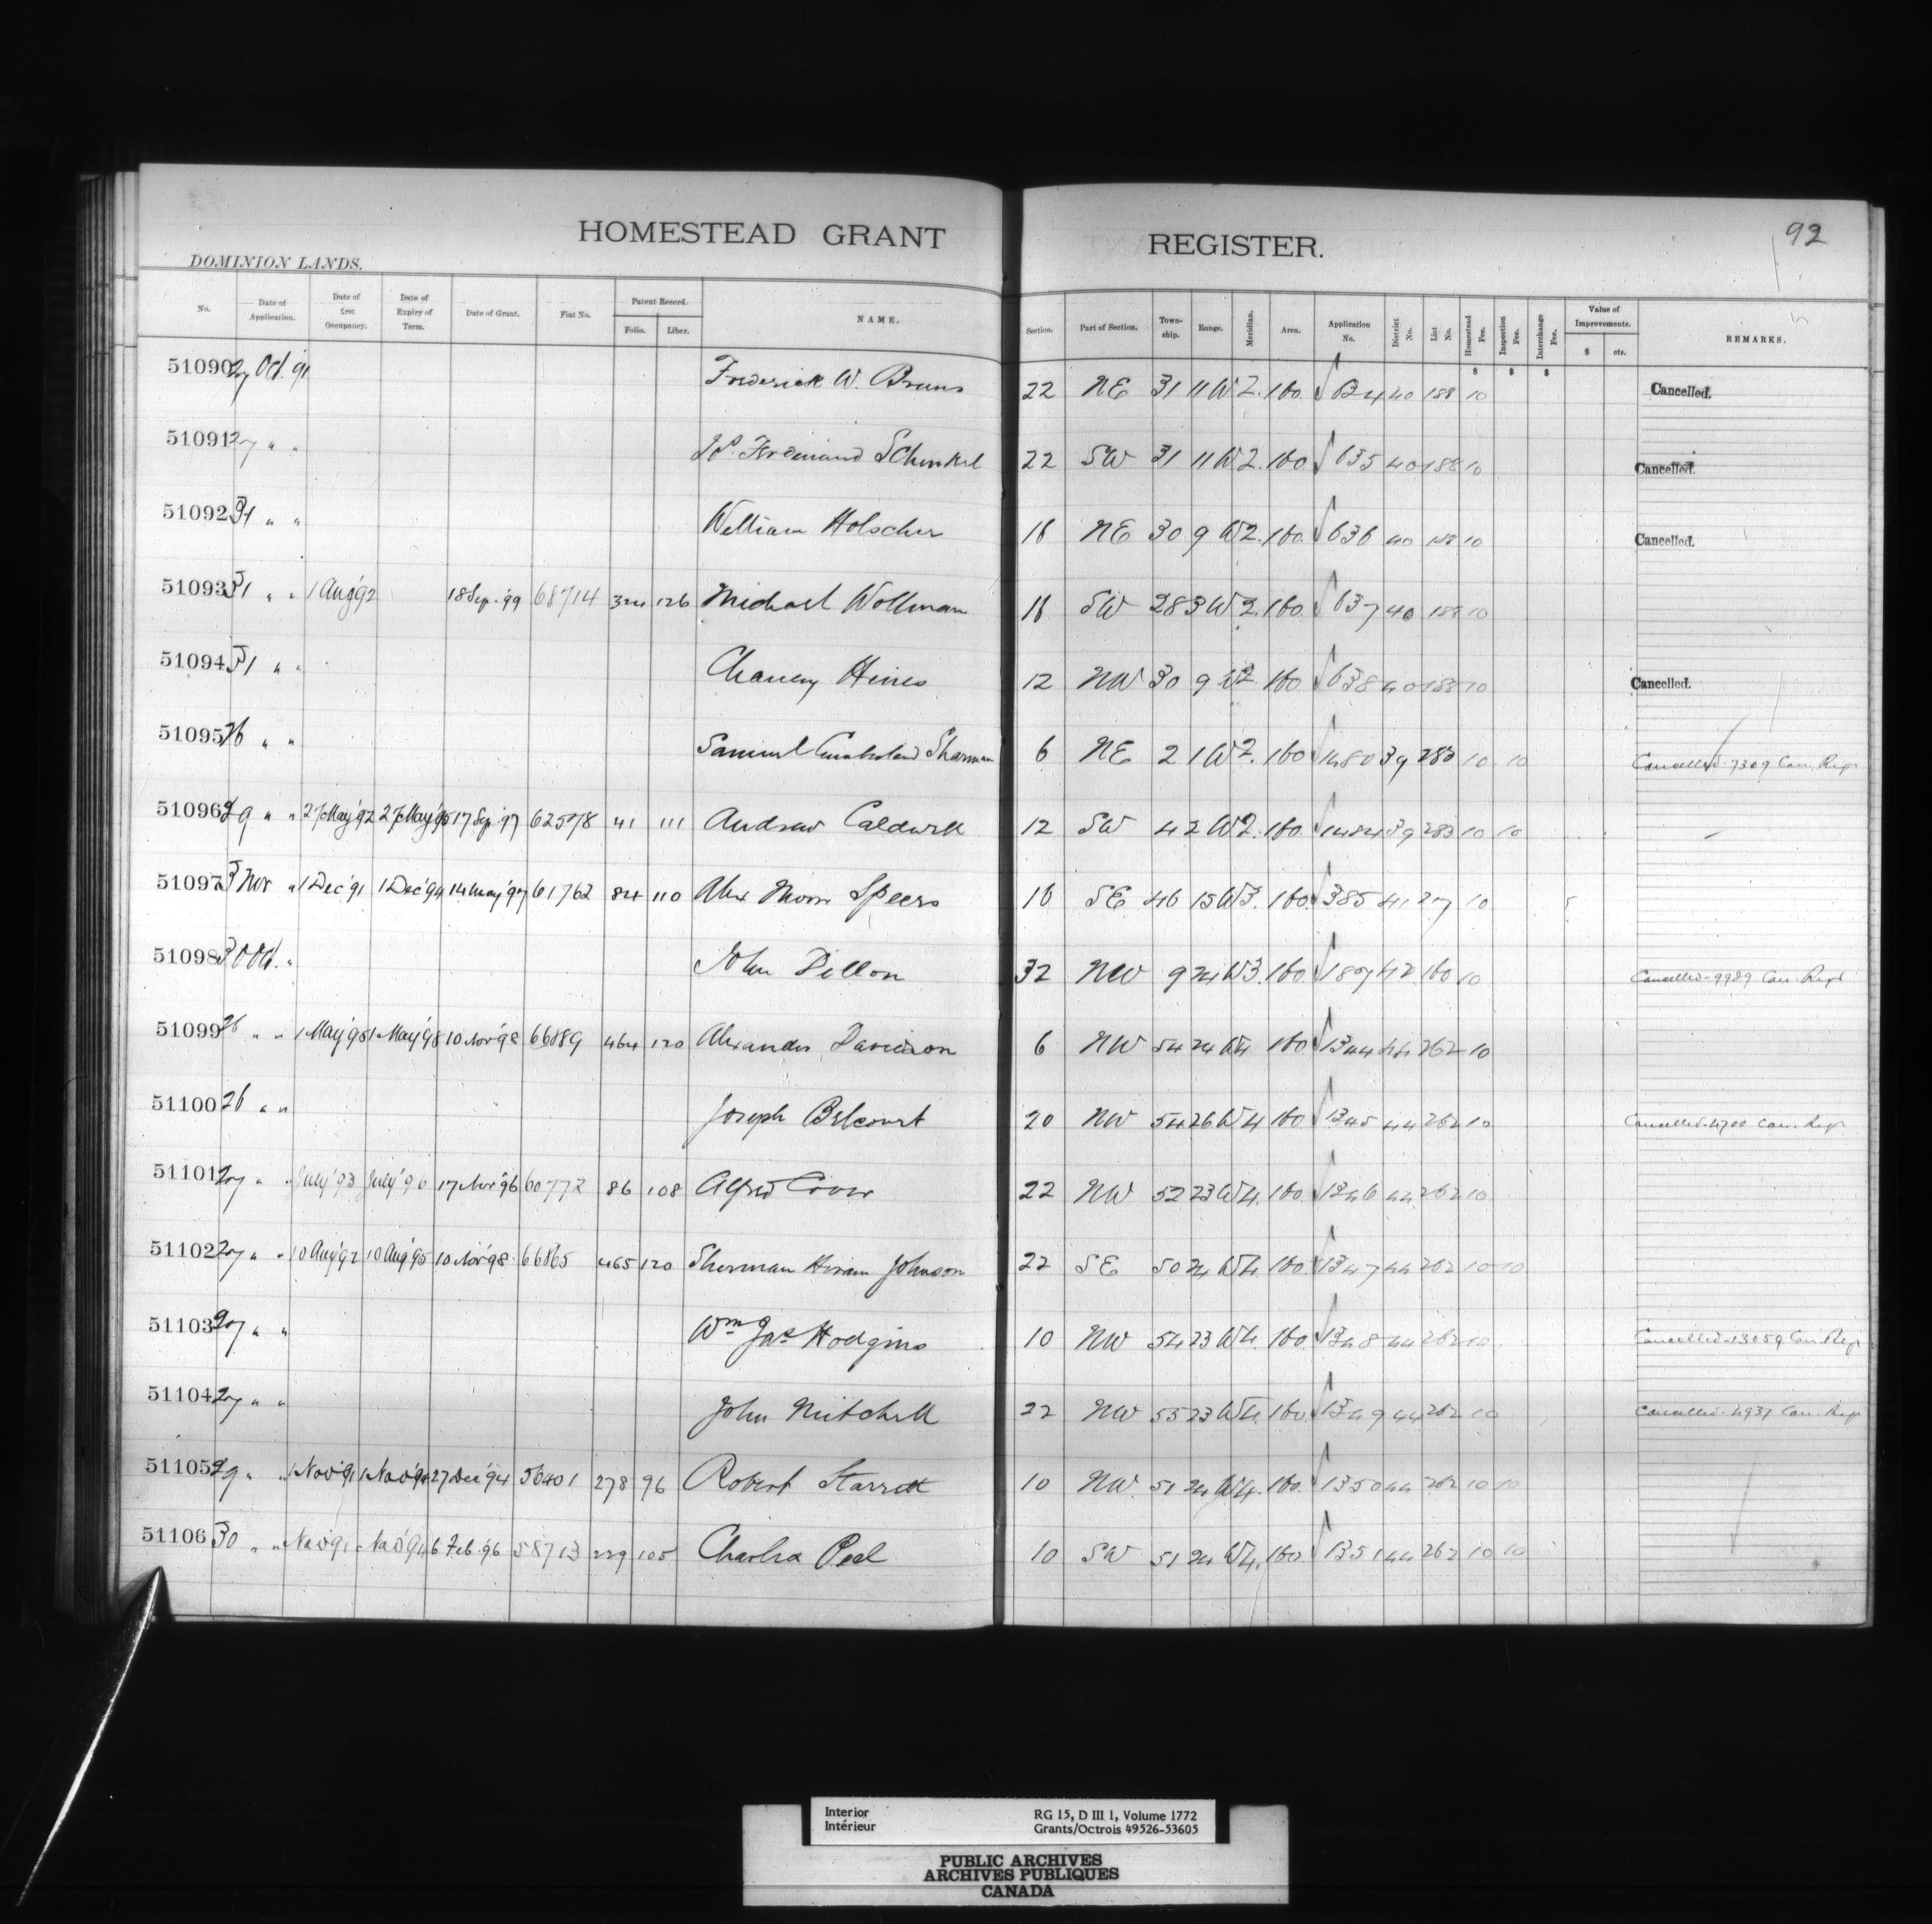 HOMESTEAD GRANT REGISTER.
92
DOMINION LANDS.
No. Date of Application. Date of first Occupancy. Date of Expiry of Term. Date of Grant. Fiat No. Patent Record. Folio. Liber. NAME. Section. Part of Section. Town-ship. Range. Meridian. Area. Application No. District No. List No. Homestead Fee. Inspection Fee. Interchange Fee. Value of Improvements. $ cts. REMARKS.
$ $ $
51090 27 Oct. 91 Frederick W. Bruns 22 NE 31 11 W2. 160. 634 40 188 10 Cancelled.
51091 27 " " Ferdinand Schinkel 22 SW 31 11 W2. 160 635 40 188 10 Cancelled.
51092 31 " " William Holscher 16 NE 30 9 W2. 160. 636 40 188 10 Cancelled.
51093 31 " " 1 Aug '92 18 Sep. '99 68714 324 126 Michael Wollman 16 SW 28 3 W2. 160. 637 40 188 10
51094 31 " " Hines 12 NW 30 9 W2. 160 638 40 188 10 Cancelled.
51095 26 " " Samuel Cumberland Sharman 6 NE 2 1 W2. 160 1480 39 283 10 10 Cancelled-7309 Can. Regr
51096 29 " " 27 May '92 27 May '95 17 Sep. '97 62578 41 111 Andrew Caldwell 12 SW 4 2 W2. 160. 1484 39 283 10 10
51097 3 Nov " 1 Dec '91 1 Dec '94 14 May '97 61762 84 110 Alex Moore Speers 16 SE 46 15 W3. 160. 385 41 27 10
51098 30 Oct. " John Dillon 32 NW 9 24 W3. 160. 187 42 160 10 Cancelled-9989 Can. Regr
51099 26 " " 1 May '95 1 May '98 10 Nov '98 66889 464 120 Alexander Davidson 6 NW 54 24 W4 160 1344 44 262 10
51100 26 " " Joseph Belcourt 20 NW 54 26 W4 160. 1345 44 262 10 Cancelled-4700 Can. Regr
51101 27 " " July '93 July '96 17 Nov '96 60772 86 108 Alfred 22 NW 52 23 W4. 160. 1346 44 262 10
51102 27 " " 10 Aug '92 10 Aug '95 10 Nov '98. 66865 465 120 Sherman Hiram Johnson 22 SE 50 24 W4. 160. 1347 44 262 10 10
51103 27 " " Wm Jas Hodgins 10 NW 54 23 W4. 160. 1348 44 262 10 Cancelled-13059 Can Regr
51104 27 " " John Mitchell 22 NW 55 23 W4. 160. 1349 44 262 10 Cancelled-4937 Can. Regr
51105 29 " " 1 Nov '91 1 Nov '94 27 Dec '94 56401 278 96 Robert Starrett 10 NW 51 24 W4. 160. 1350 44 262 10 10
51106 30 " " Nov '91 Nov '94 6 Feb. 96 58713 229 105 Charles Peel 10 SW 51 24 W4. 160. 1351 44 262 10 10
Interior RG 15, D III 1, Volume 1772
Intérieur Grants/Octrois 49526-53605
PUBLIC ARCHIVES
ARCHIVES PUBLIQUES
CANADA